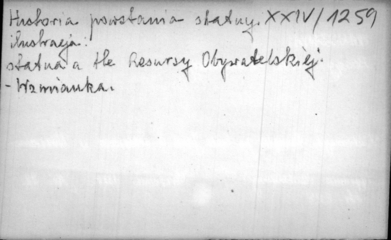 Historia powstania statuy. XXIV/1259
ilustracja:
statua a tle Resursy Obywatelskiej.
- Wzmianka.